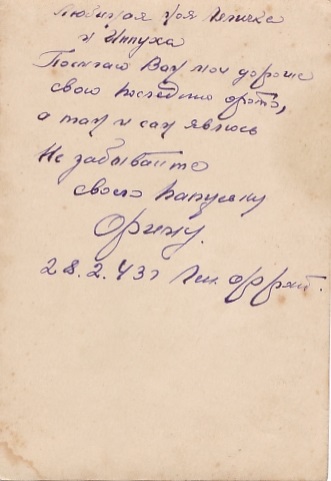 Любимая моя
и Иппуха
Посылаю Вам мои дорогие
свою последнюю фото,
а там и сам явлюсь
Не забывайте
своего папулену
28.2.43г